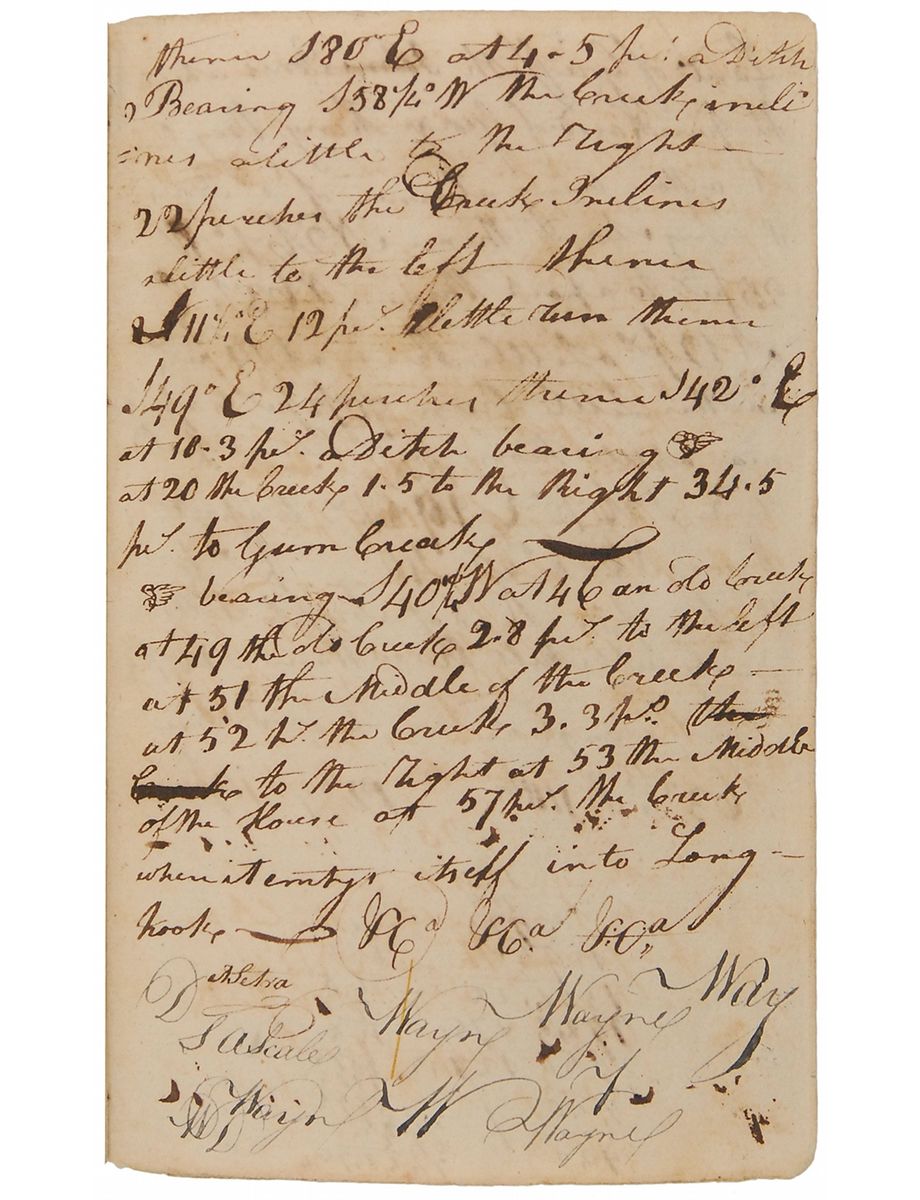 thence S80° E at 4-5 pes. a Ditch
Bearing S58¼° W the Creek incli
=nes alittle to the Right —
22 perches the Creek Inclines
alittle to the left — thence
N11½° E 12 pes. alittle run thence
S49° E 24 perches thence S42° E
at 10.3 pes. a Ditch bearing
at 20 the Creek 1.5 to the Right 34.5
pes. to Gum Creek —
bearing S40½ W at 46 an do Creek
at 49 the do Creek 2.8 pes. to the left
at 51 the Middle of the Creek —
at 52 ps. the Creek 3.3 pes. the
Creek to the Right at 53 the Middle
of the House at 57 pes. the Creek
when it emtys itself into Long-
hook —
Wayn Wayne Way
Scale
Wayn W Wayne